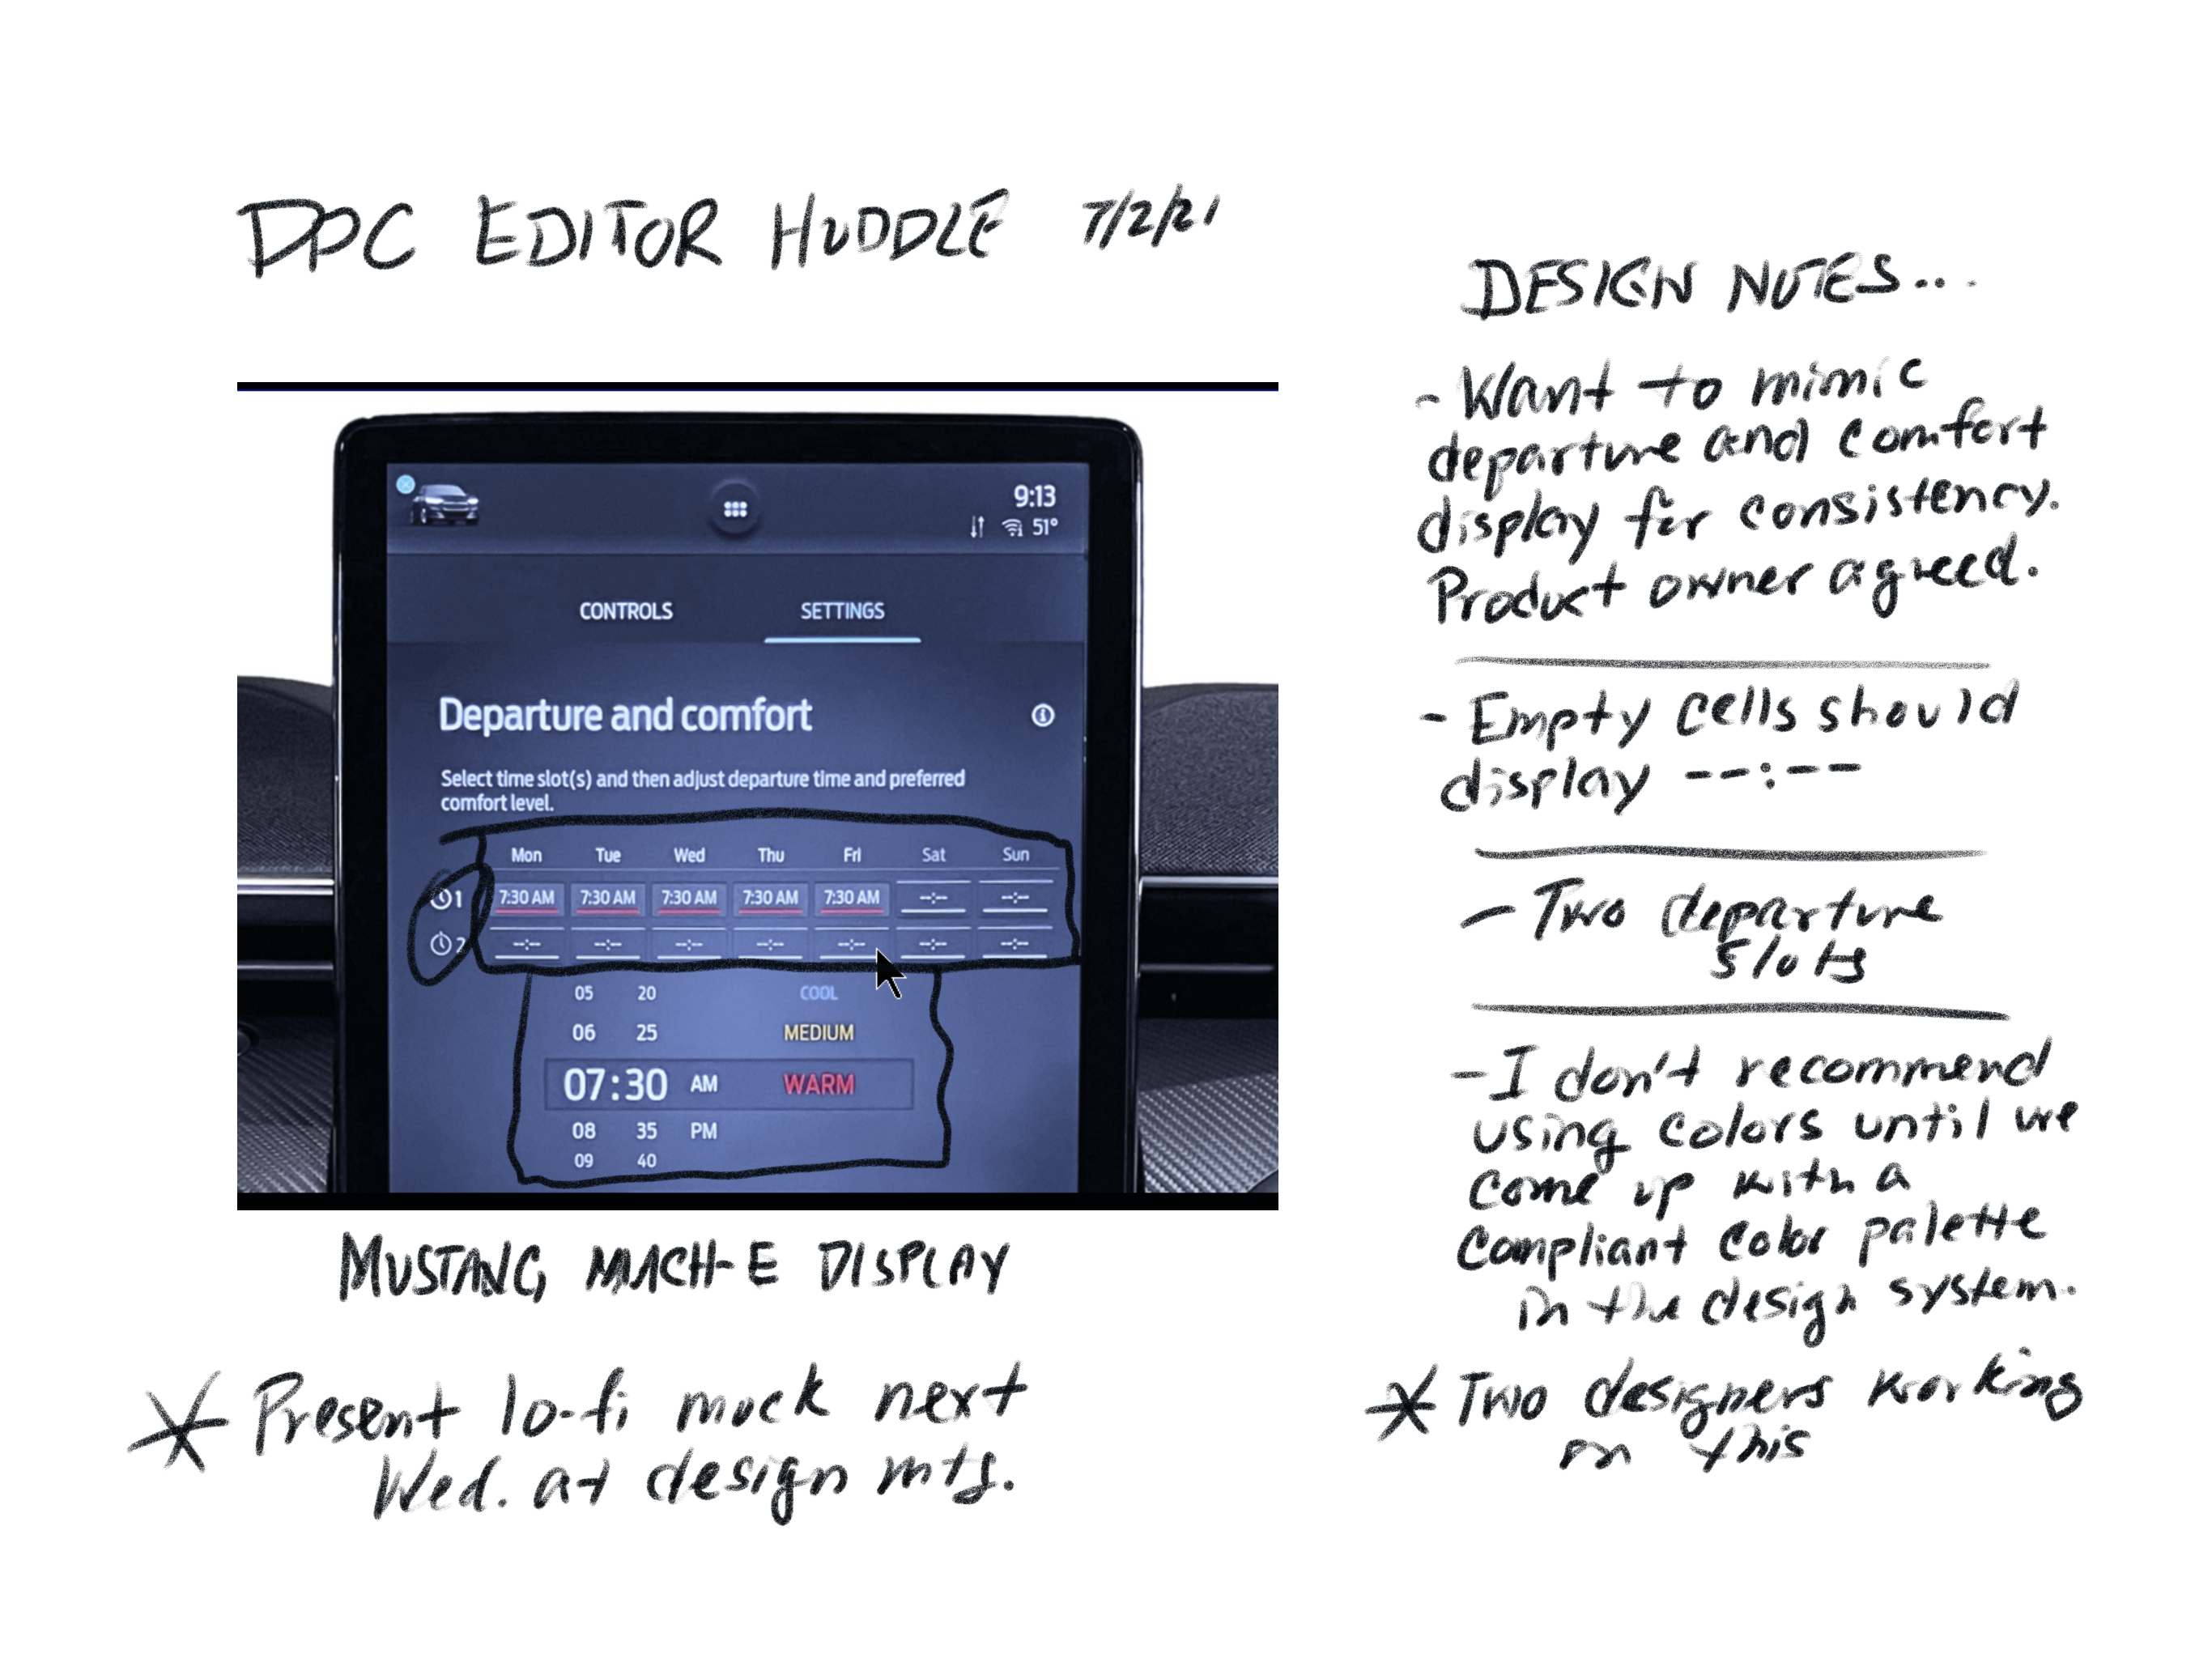 DPC EDITOR HUDDLE 7/2/21
9:13
51°
CONTROLS SETTINGS
Departure and comfort
Select time slot(s) and then adjust departure time and preferred
comfort level.
Mon Tue Wed Thu Fri Sat Sun
1 7:30 AM 7:30 AM 7:30 AM 7:30 AM 7:30 AM --:-- --:--
2 --:-- --:-- --:-- --:-- --:-- --:-- --:--
05 20 COOL
06 25 MEDIUM
07:30 AM WARM
08 35 PM
09 40
MUSTANG MACH-E DISPLAY
* Present lo-fi mock next
Wed. at design mtg.
DESIGN NOTES...
- Want to mimic
departure and comfort
display for consistency.
Product owner agreed.
- Empty cells should
display --:--
- Two departure
slots
- I don't recommend
using colors until we
come up with a
compliant color palette
in the design system.
* Two designers working
on this